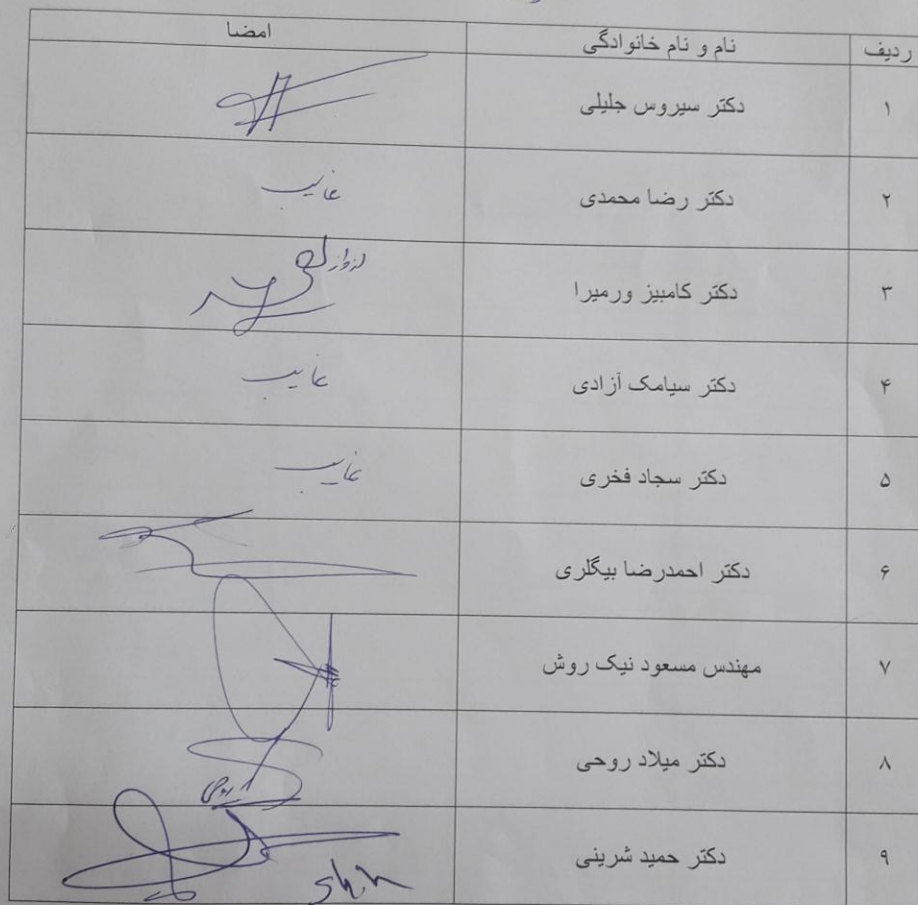 ردیف نام و نام خانوادگی امضا
۱ دکتر سیروس جلیلی
۲ دکتر رضا محمدی غایب
۳ دکتر کامبیز ورمیرا
۴ دکتر سیامک آزادی غایب
۵ دکتر سجاد فخری غایب
۶ دکتر احمدرضا بیگلری
۷ مهندس مسعود نیک روش
۸ دکتر میلاد روحی روحی
۹ دکتر حمید شرینی